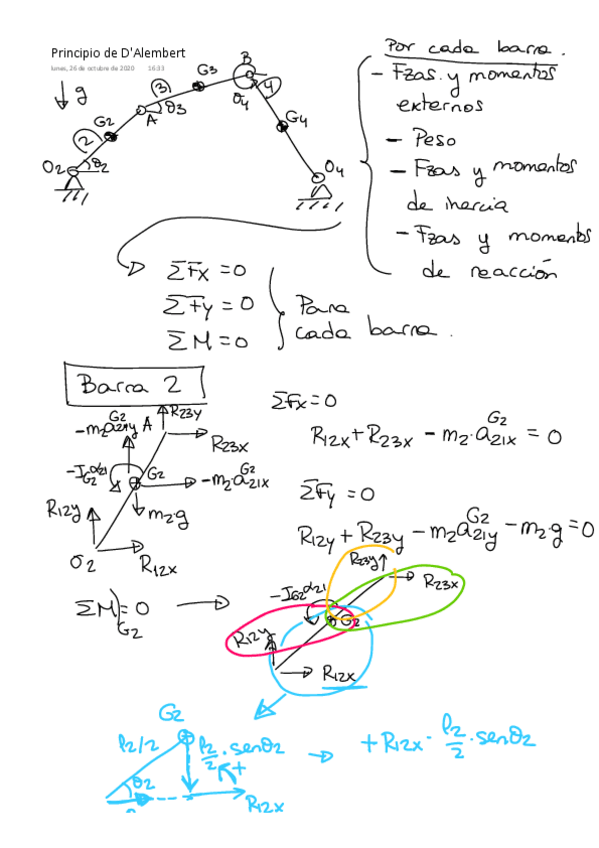 Principio de D'Alembert
lunes, 26 de octubre de 2020 16:33
Por cada barra.
- Fzas. y momentos
externos
- Peso
- Fzas y momentos
de inercia
- Fzas y momentos
de reacción
g
O2
θ2
2
G2
A
3
θ3
G3
B
θ4
4
G4
O4
ΣFx = 0
ΣFy = 0
ΣM = 0
Para
cada barra.
Barra 2
R23y
A
R23x
-m2·a21y^G2
-IG2·α21
G2
-m2·a21x^G2
m2·g
R12y
O2
R12x
ΣFx = 0
R12x + R23x - m2·a21x^G2 = 0
ΣFy = 0
R12y + R23y - m2·a21y^G2 - m2·g = 0
ΣM)G2 = 0
R23y
R23x
-IG2·α21
G2
R12y
R12x
G2
l2/2
l2/2·senθ2
+
θ2
R12x
+R12x·l2/2·senθ2